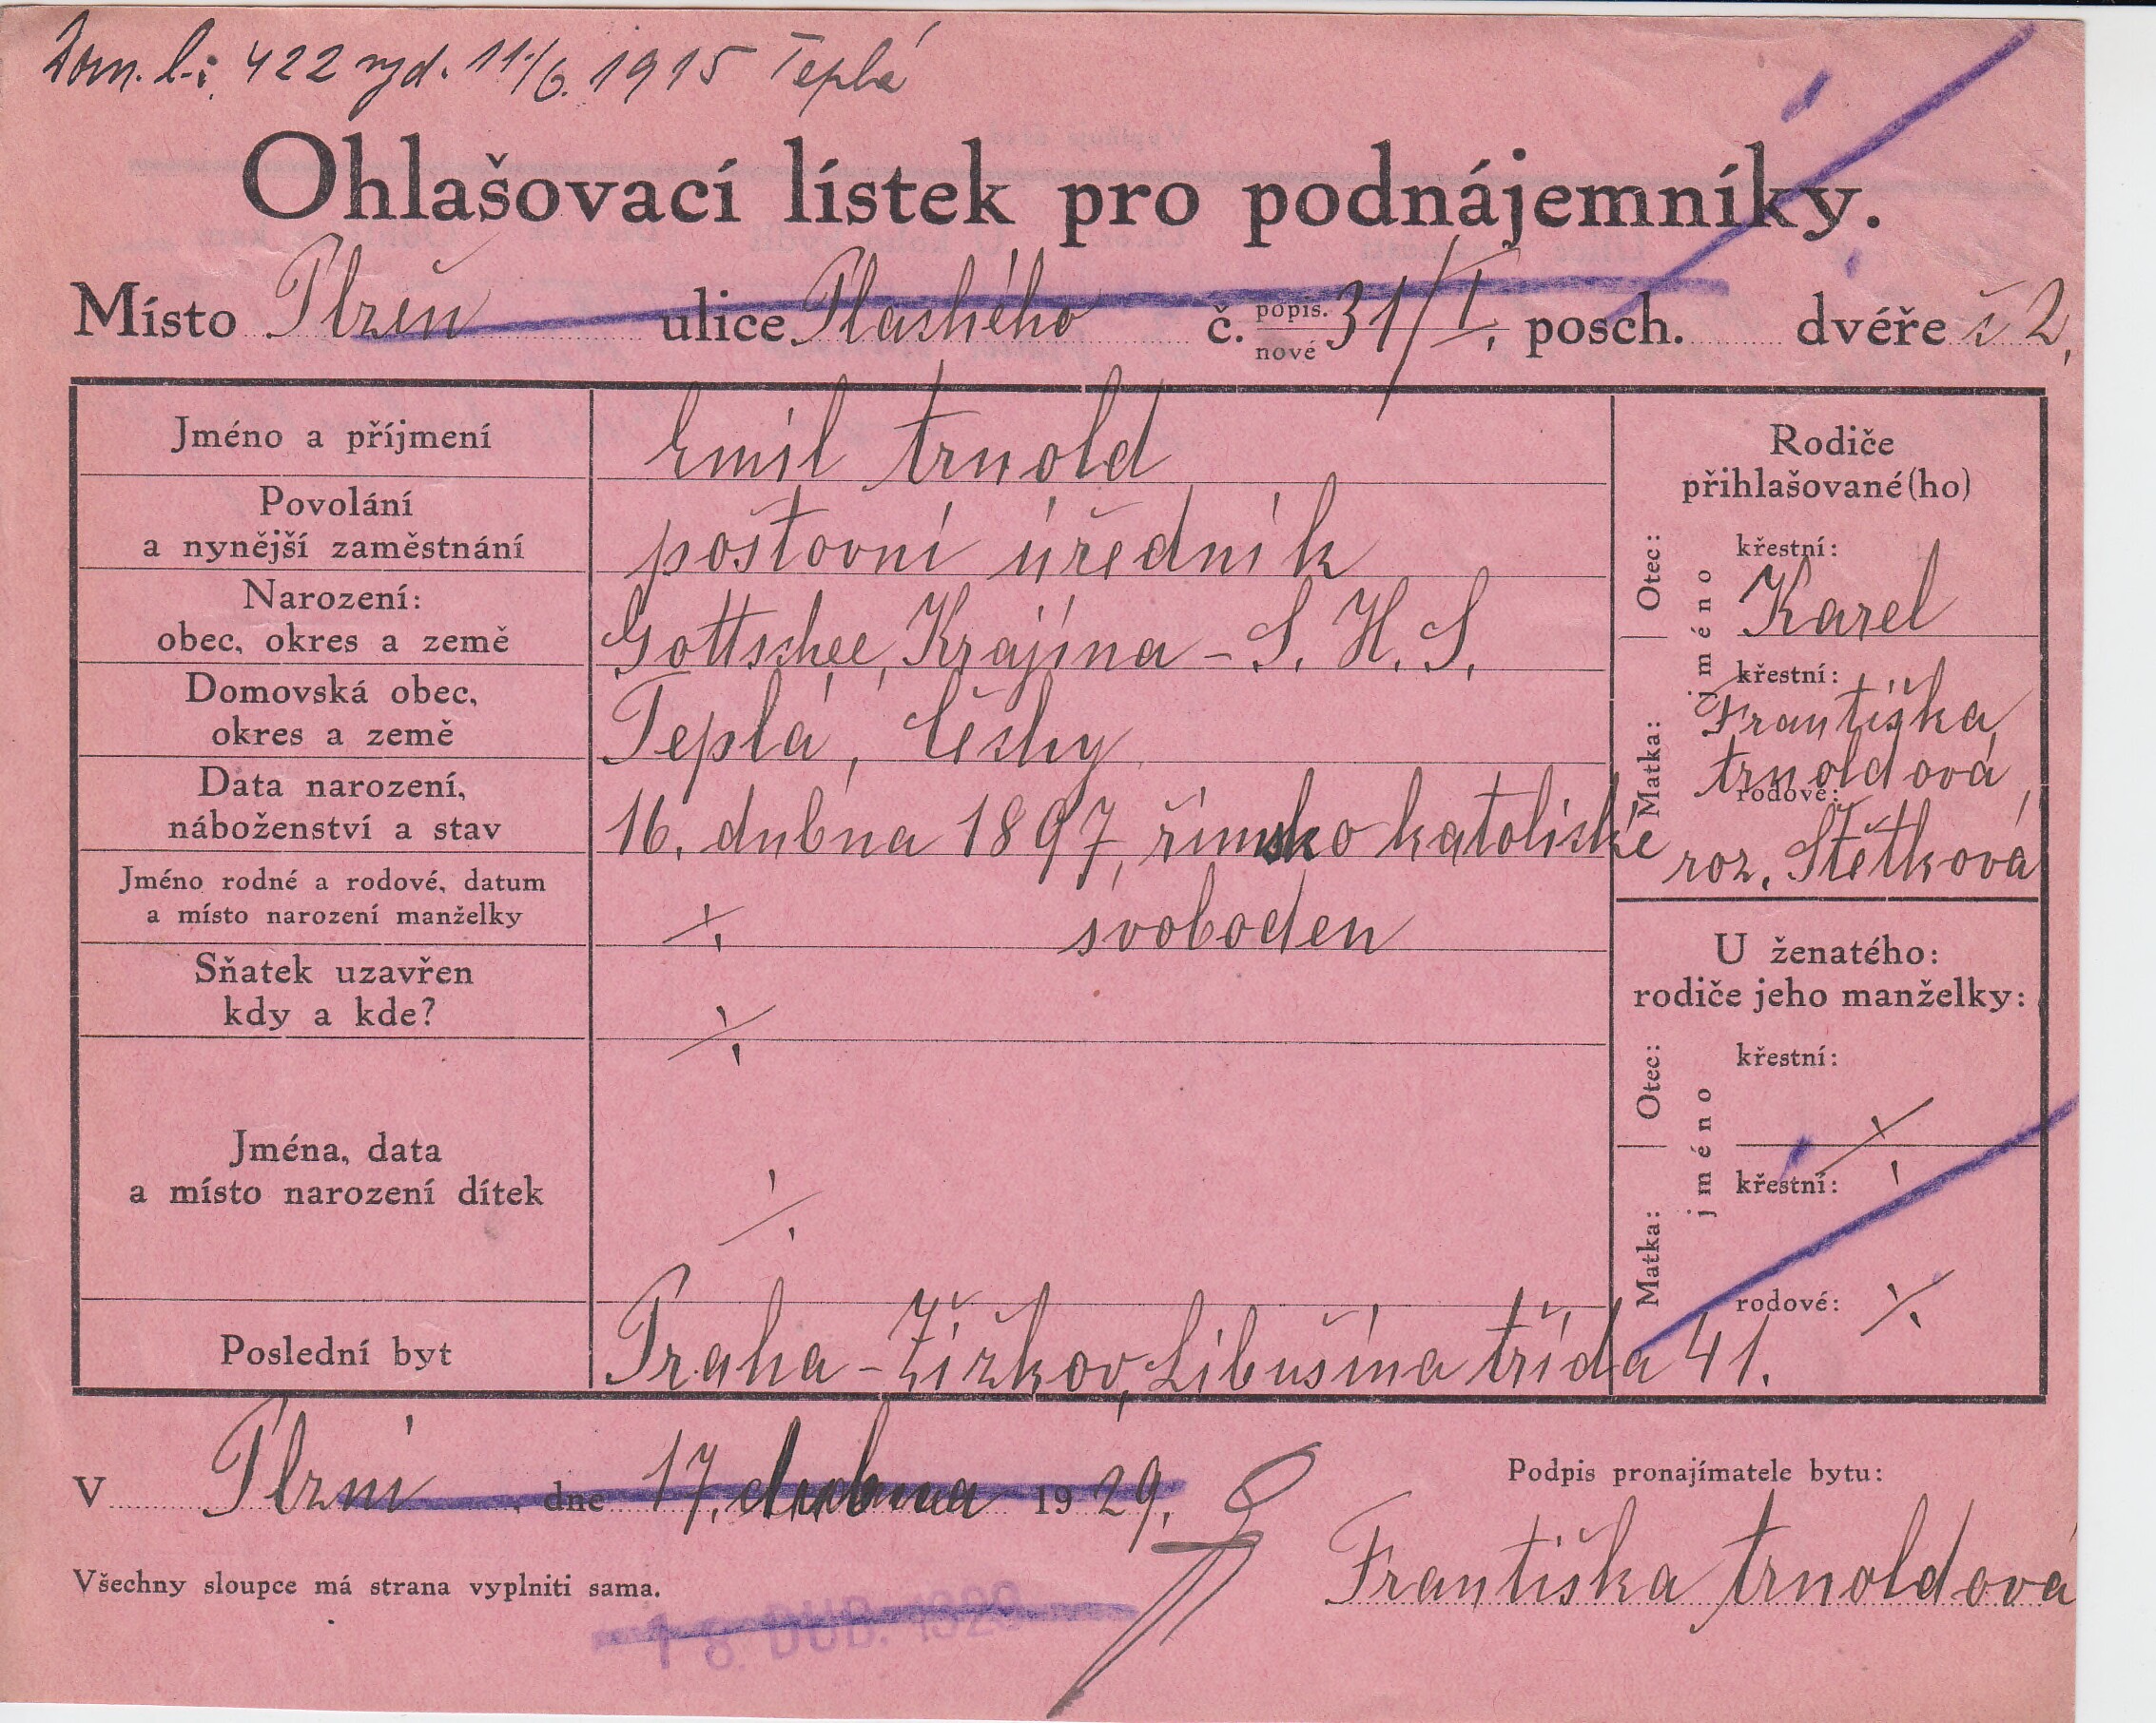 Dom. l. č. 422 vyd. 11/6. 1915 Teplá
Ohlašovací lístek pro podnájemníky.
Místo Plzeň ulice Plaského č. popis. nové 31/I. posch. dvéře č 2.
Jméno a příjmení
Emil Arnold
Povolání
a nynější zaměstnání
poštovní úředník
Narození:
obec, okres a země
Gottschee, Krajina - S. H. S.
Domovská obec,
okres a země
Teplá, Čechy
Data narození,
náboženství a stav
16. dubna 1897, římsko katolické
Jméno rodné a rodové, datum
a místo narození manželky
⁒ svoboden
Sňatek uzavřen
kdy a kde?
⁒
Jména, data
a místo narození dítek
⁒
Poslední byt
Praha - Žižkov, Libušina třída 41.
Rodiče
přihlašované(ho)
Otec:
jméno
křestní:
Karel
Matka:
křestní:
Františka
Arnoldová,
rodové:
roz. Štětková
U ženatého:
rodiče jeho manželky:
Otec:
jméno
křestní:
⁒
Matka:
křestní:
rodové: ⁒
V Plzni, dne 17. dubna 1929.
Podpis pronajímatele bytu:
Františka Arnoldová
Všechny sloupce má strana vyplniti sama.
18. DUB. 1929